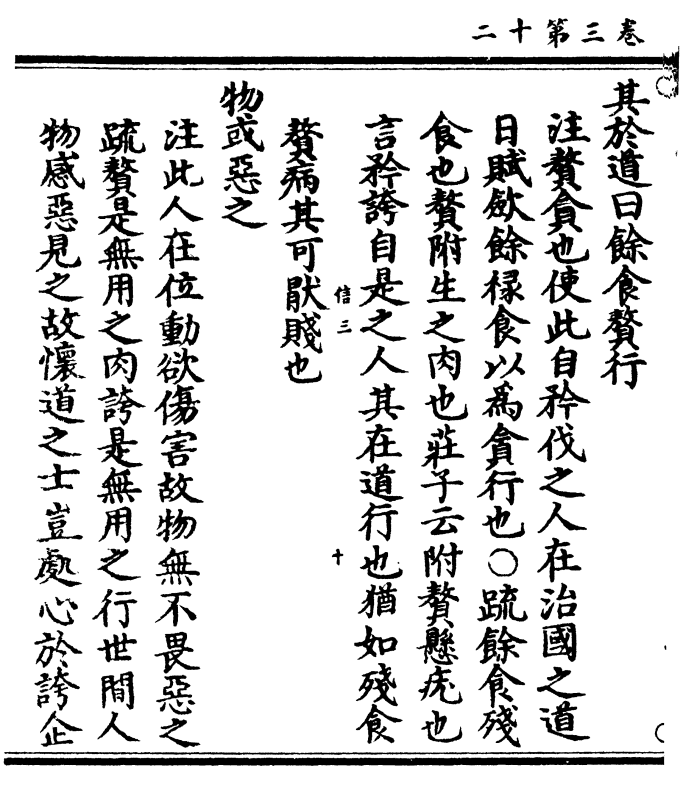 卷三第十二
其於道曰餘食贅行
注贅貪也使此自矜伐之人在治國之道
日賦歛餘祿食以爲貪行也〇疏餘食殘
食也贅附生之肉也莊子云附贅懸疣也
言矜誇自是之人其在道行也猶如殘食
信三 十
贅病其可猒賤也
物或惡之
注此人在位動欲傷害故物無不畏惡之
疏贅是無用之肉誇是無用之行世間人
物感惡見之故懷道之士豈處心於誇企